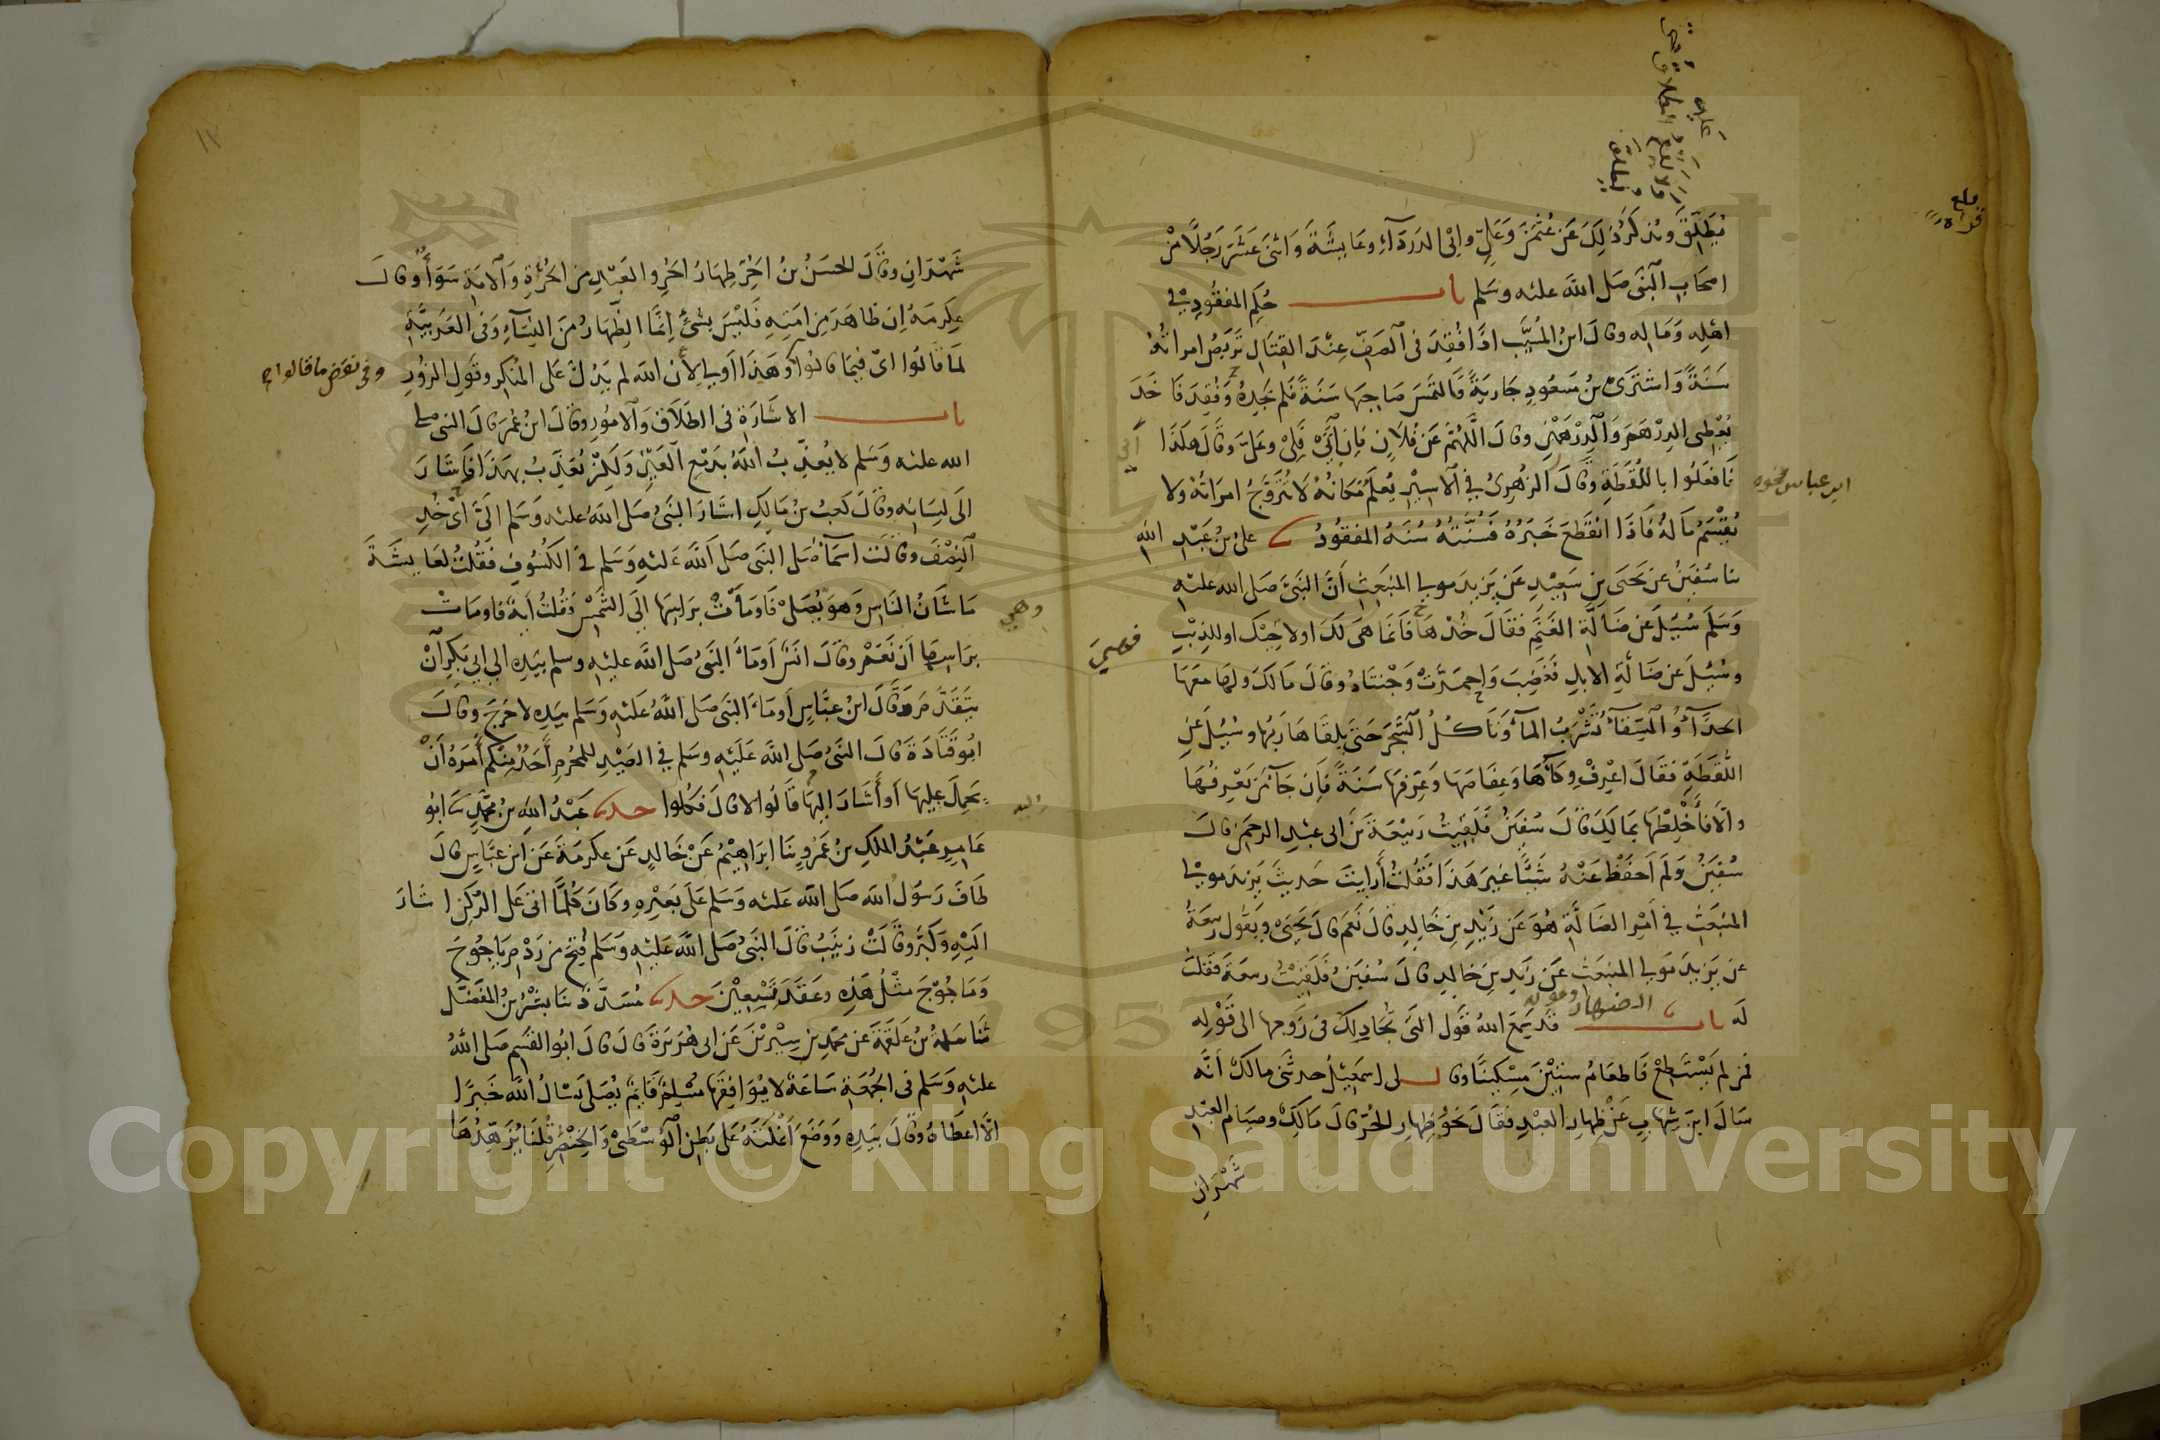 عليه
ولا يقع الطلاق حتى
يطلق
بلغ
قراءة
يُطَلِّقَ وَيُذكَرُ ذٰلِكَ عَن عُثمٰنَ وَعَلِيٍّ وابِى الدَردَآءِ وعَايِشَةَ وَاثنَى عَشَرَ رَجُلًا مِنْ
اصحَابِ النَّبِىِّ صَلى اللَّه عليه وسَلم باب حُكمِ المفقُودِ فِى
اهْلِه وَمَالِه وقالَ ابنُ المُسَيَّبِ اذَا فُقِدَ فى الصَفِّ عِنْدَ القِتَالِ تَرَبَّصُ امراتُهُ
سَنَةً وَاشترَى بنُ مَسعُودٍ جَارِيَةً فَالتَمَسَ صَاحِبَها سَنَةً فلم يَجِدهُ وَفُقِدَ فَاخَذَ
يُعْطِى الدِرْهَمَ وَالدِّرْهَمَيْنِ وقالَ اللَّهُمَّ عَن فُلَانٍ فان اَتَى فَلِىْ وعَلَىَّ وقَالَ هٰكذَا
فَافعَلُوا باللُقَطَةِ وقَالَ الزُهرِىُّ فِي الاسِيْرِ يُعلَمُ مَكَانُهُ لَا تُزَوَّجُ امرَاتُهُ ولا
ابن عباس نحوه
يُقْسَمُ مَالُهُ فَاذَا انْقَطَعَ خَبَرُهُ فَسُنَّتُهُ سُنَةُ المفقُودِ علىُّ بنُ عَبْدِ الله
نا سُفيٰنُ عن يَحيَى بنِ سَعِيْدٍ عَن يَزِيدَ مولى المنبَعِثِ أنَّ النَّبِىَّ صَلى الله عليه
وَسَلَّمَ سُئِلَ عَن ضَالَّةِ الغَنَمِ فقَالَ خُذْهَا فَانمَا هِىَ لَكَ او لاخِيْكَ او للذِئْبِ
وسُئِلَ عَن ضَالَّةِ الابِلِ فَغَضِبَ وَاحمَرَّتْ وَجْنتَاهُ وقالَ مَا لكَ ولها مَعَهَا
الحِذَآءُ والسِّقَآءُ تَشْرَبُ المآءَ وتَاكُلُ الشَّجَرَ حَتى يَلقَاهَا رَبُّها وسُئِلَ عَنِ
اللُّقَطَةِ فَقَالَ اعْرِفْ وِكَآءَهَا وعِفَاصَهَا وَعَرِّفهَا سَنَةً فَاِن جَآءَ مَن يَعْرِفُهَا
والّا فَاخْلِطْهَا بِمَالِكَ قالَ سُفيٰنُ فَلَقِيْتُ رَبِيْعَةَ بنَ ابى عبْدِ الرحمٰنِ قالَ
سُفيٰنُ وَلَم اَحفَظْ عَنْهُ شَيْئًا غَيرَ هَذَا فَقُلتُ أرأيتَ حَديثَ يَزيدَ مولى
المنبَعِثِ فِي اَمْرِ الضَالَّةِ هُوَ عَن زَيْدِ بنِ خَالِدٍ قالَ نَعَم قالَ يَحيَى ويقولُ ربيعَةُ
عن يَزِيدَ مَولى المنبعَثِ عَن زَيدِ بنِ خالِدٍ قالَ سُفيٰنُ فَلَقِيْتُ ربيعَةَ فَقُلتُ
الظهار وقوله
لَه باب قد سَمِعَ اللهُ قَولَ التِى تُجَادِلُكَ فى زَوجِها الى قَوْلِه
فَمَن لَم يَسْتَطِعْ فَاطعَامُ سِتِيْنَ مِسْكِينًا وقال لى اسمَعِيْلُ حدثَنى مالكٌ انَّه
سَالَ ابنَ شِهَابٍ عَنْ ظِهارِ العَبْدِ فقَالَ نَحوُ ظِهارِ الحُرِّ قالَ مَالِكٌ وصِيَام العبْدِ
شَهْرَانِ
شَهْرَانِ وقَالَ الحسَنُ بنُ الحُرِّ ظِهَارُ الحُرِّ والعَبْدِ من الحُرَّةِ وَالامَةِ سَوَآءٌ وقالَ
عِكرِمَةُ اِن ظاهَرَ مِن امَتِه فَلَيْسَ بشَىْءٍ اِنمَّا الظِّهَارُ مِنَ النِّسَآءِ وَفى العَرَبِيَّةِ
لمَا قَالُوا اىْ فِيمَا قالوا وَهٰذَا اَولى لِأن الله لم يَدُلَّ عَلى المُنْكرِ وقَولِ الزُورِ
وفى نقض ما قالوا
باب الاشَارَة فى الطَلَاقِ وَالامُورِ وقَالَ ابنُ عُمَرَ قالَ النبى صلى
الله عليه وَسَلم لا يُعذِّبُ اللهُ بدَمْعِ العَيْنِ وَلٰكِنْ يُعَذِّبُ بهذَا فَاشَارَ
الَى لِسَانِه وقَالَ كعبُ بنُ مَالِكٍ اشَارَ النَّبِىُّ صَلَى اللهُ عليه وَسَلم الَىَّ اىْ خُذِ
النِصْفَ وقالَت اسمَآءُ صَلى النبَى صَلى اللَّهُ عَليْهِ وَسَلم فى الكُسُوفِ فَقُلتُ لعَايشَةَ
مَا شَانُ النَاسِ وَهىَ تُصَلِّى فَاوَمَأتْ بِرَاسِها الى الشَّمْسِ فَقُلتُ اٰيَةٌ فاومَاتْ
وهى
بِرَاسِهَا اَن نَعَمْ وقالَ انَسٌ اَومَأ النَبِىُّ صَلى اللَّه عليْهِ وسلم بيَدِه الى ابى بَكْرٍ أنْ
يتَقَدَّمَ وَقَالَ ابنُ عبَّاسٍ أومَأَ النَبِىُّ صَلى اللَّهُ عَليْهِ وَسَلم بيَدِه لا حَرَجَ وقالَ
ابُو قَتَادَةَ قالَ النَّبِىُّ صَلى اللَّه عَليْهِ وسَلم فِي الصَيْدِ للمُحرِمِ أحَدٌ مِنْكم أَمَرَهُ أنْ
يَحمِلَ عليهَا اَو أَشَارَ اليهَا قَالُوا لا قالَ فَكلوا حدثنا عَبْدُ اللهِ بنُ محمَّدٍ نا ابُو
عَامِرٍ عَبْدُ المَلِكِ بنُ عَمْرٍو نَا ابرَاهِيْمُ عَنْ خَالِدٍ عَن عِكرِمَةَ عَن ابنِ عبَّاسٍ قالَ
طَافَ رَسُول اللهِ صَلى اللَّه عَليه وَسَلم عَلَى بَعْيرِهِ وكَانَ كُلمَّا اتى عَلى الرُكنِ اشَارَ
اليْهِ وَكَبَّر وقَالَتْ زينَبُ قالَ النَبِىُّ صَلى اللَّه عَليْهِ وسَلم فُتِحَ من رَدْمِ يَاجُوجَ
وَمَاجُوْجَ مثْلُ هٰذِه وعَقَدَ تِسْعِيْنَ حدثنا مُسَدَّدٌ نَا بِشْرُ بنُ المُفَضَّلِ
نَا سَلَمَةُ بنُ عَلقَمَةَ عَن محمَّدِ بنِ سِيْرِيْنَ عَن ابى هُرَيرَةَ قالَ قالَ ابُو القٰسِمِ صَلى اللهُ
عليْهِ وَسَلم فى الجُمُعَةِ سَاعَةٌ لا يُوَافِقُهَا مُسْلِمٌ قَائِمٌ يُصَلى يَسْالُ اللَّهَ خَيرًا
الَّا اعطَاهُ وقَالَ بيَدِه وَوَضَعَ اَنْمُلَتَهُ عَلى بَطنِ الوُسْطَى وَالخِنْصِرِ قُلنَا يُزَهِّدُهَا
Copyright © King Saud University
1957